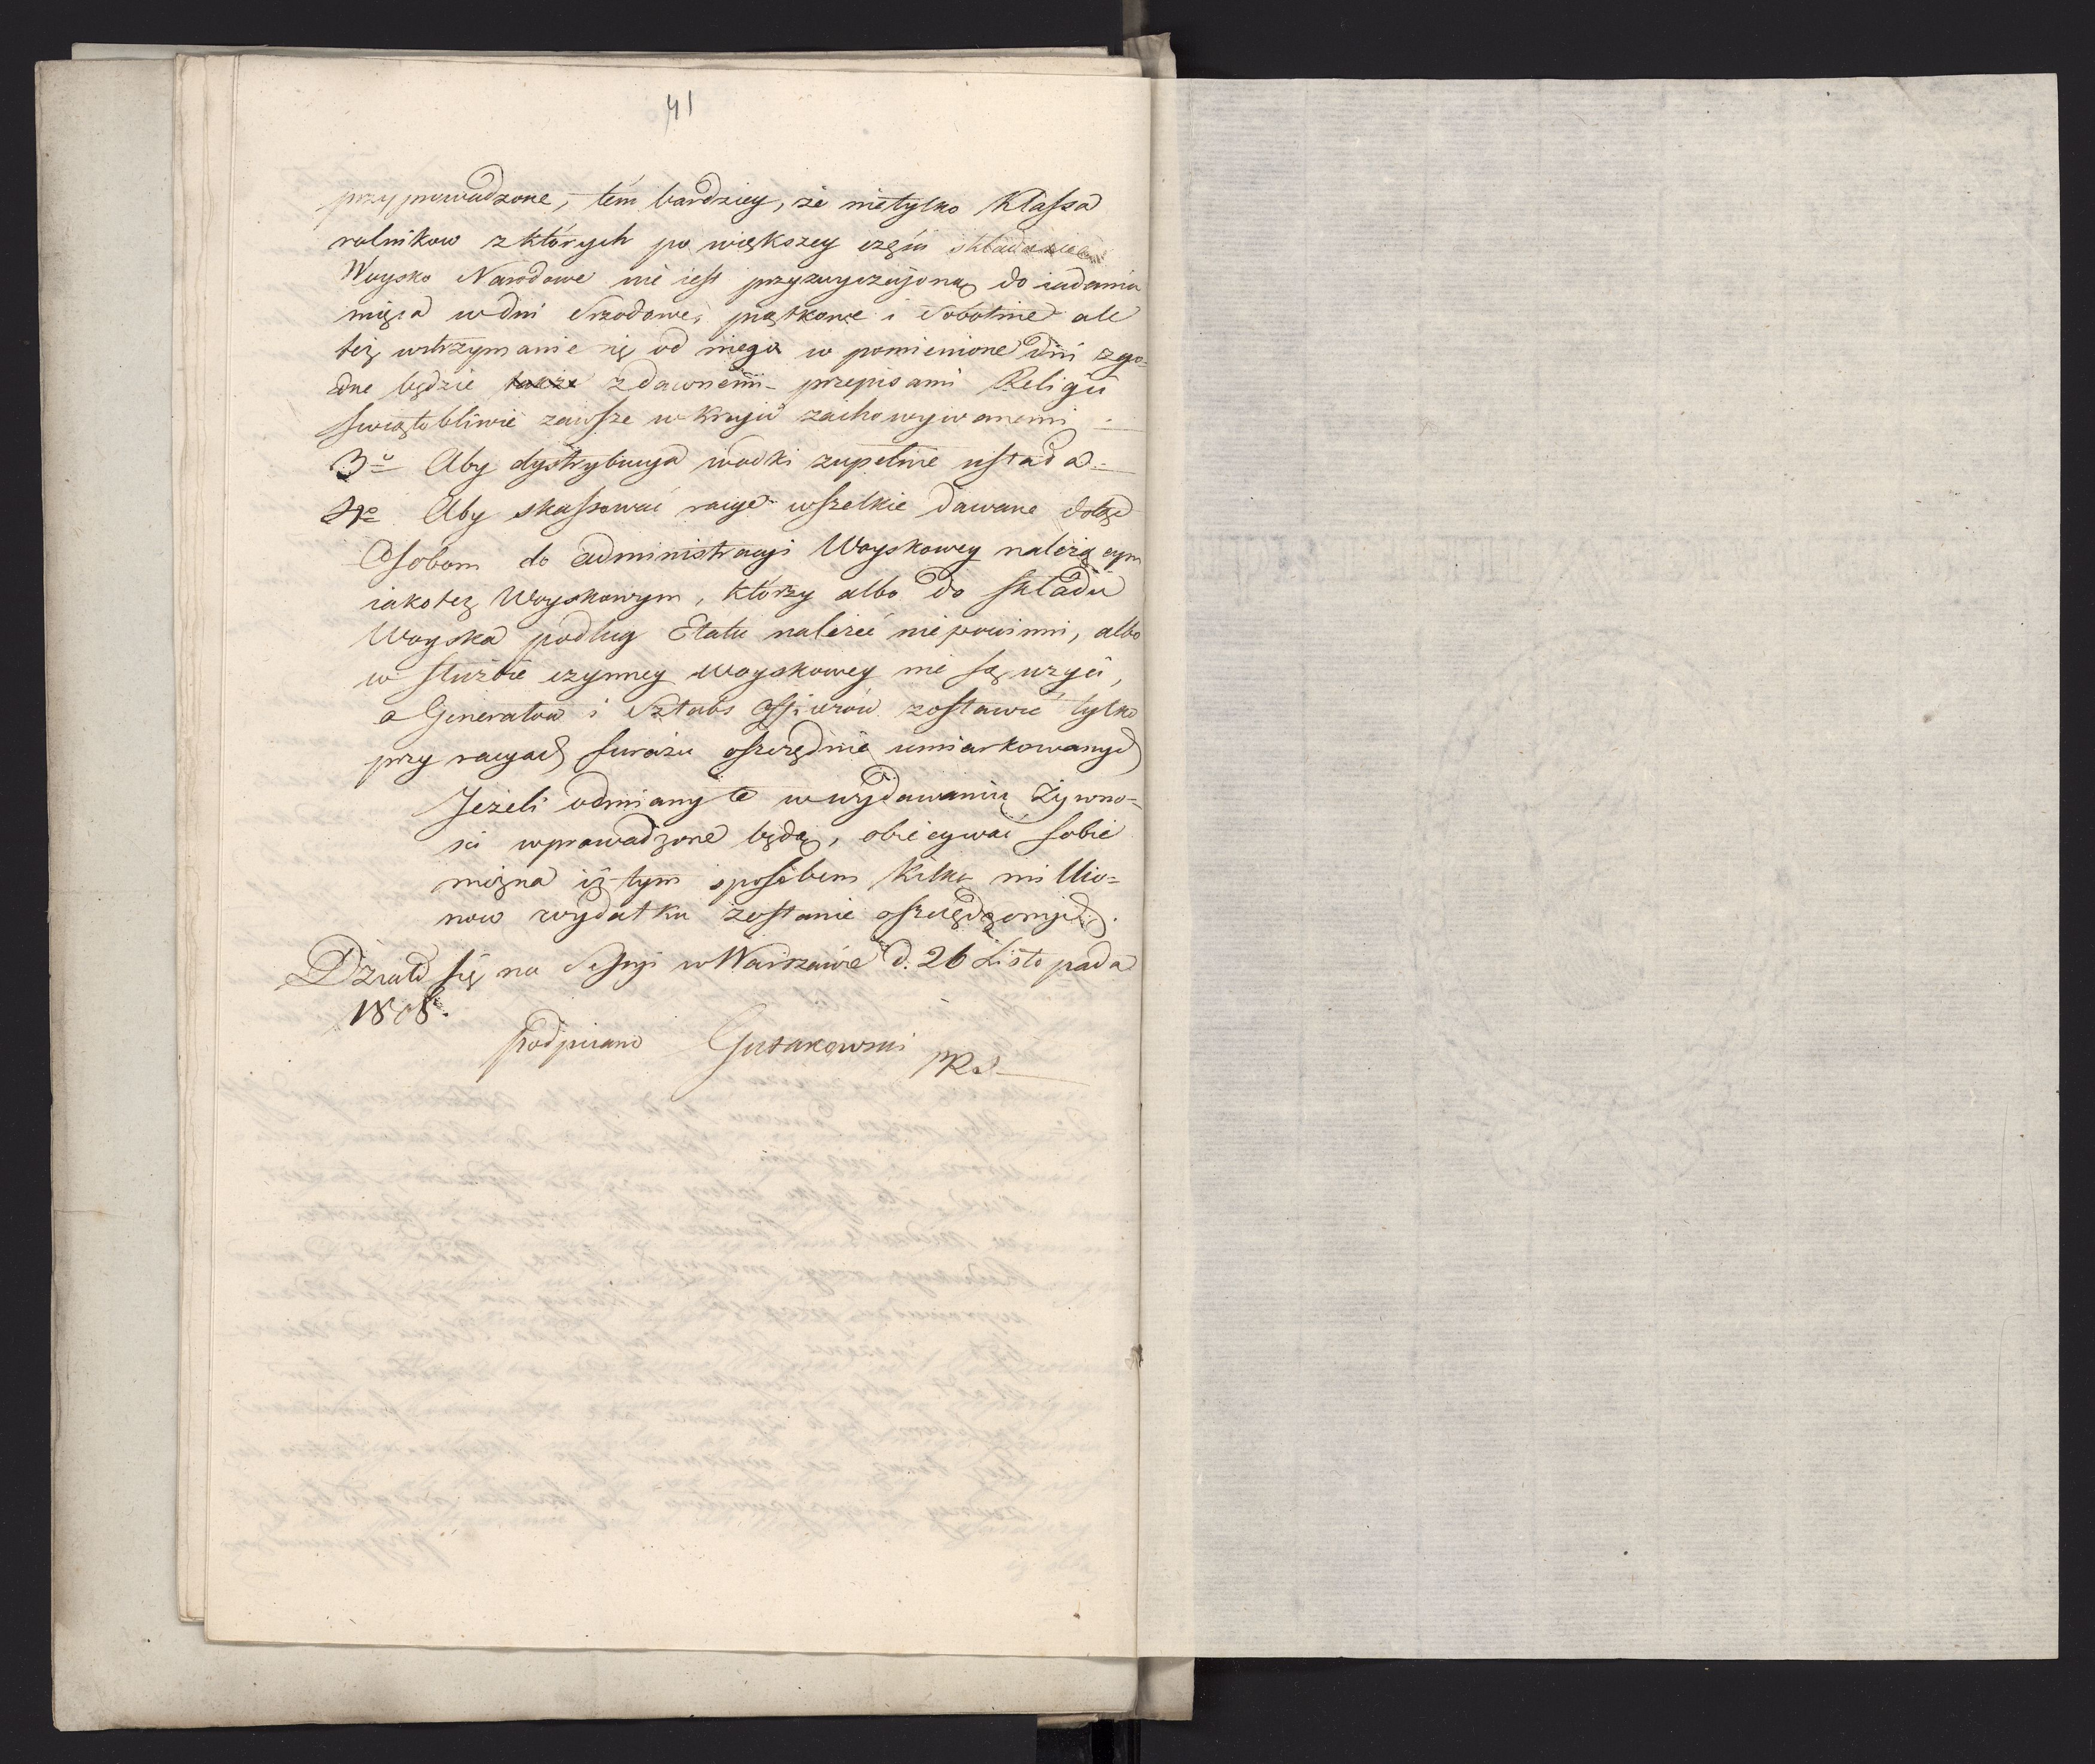 41
przyprowadzone, tém bardziey, że nietylko Klassa
rolnikow z których po większey częsci składa się
Woysko Narodowe nie iest przyzwyczajoną do iadania
mięsa w dni Srzodowe, piątkowe i Sobotnie ale
też wstrzymanie się od niego w pomienione dni zgo-
dne będzie także z dawnemi przepisami Religii
swiątobliwie zawsze w kraju zachowywanemi.
3o Aby dystrybucya wodki zupełnie ustała.
4o Aby skassować racye wszelkie dawane dotąd
Osobom do administracyi Woyskowey należącym
iakoteż Woyskowym, którzy albo do składu
Woyska podług Etatu należeć niepowinni, albo
w służbie czynney woyskowey nie są użyci,
a Generałow i Sztabs Officerów zostawić tylko
przy racyach furażu oszczędnie umiarkowanych
Jeżeli odmiany te w wydawaniu żywno-
sci wprowadzone będą, obiecywać sobie
można iż tym sposobem kilka millio-
now wydatku zostanie oszczędzonych.
Działo się na Sessyi w Warszawie d. 26 Listopada
1808.
podpisano Gutakowski PRS